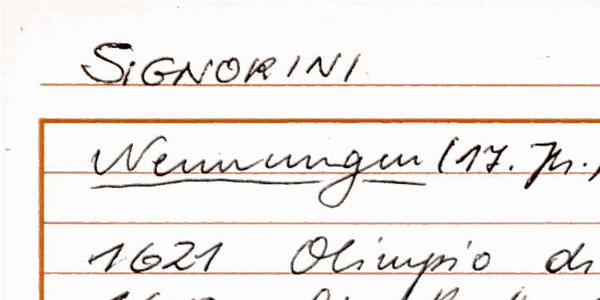 SIGNORINI
Nennungen (17. Jh.)
1621 Olimpio di